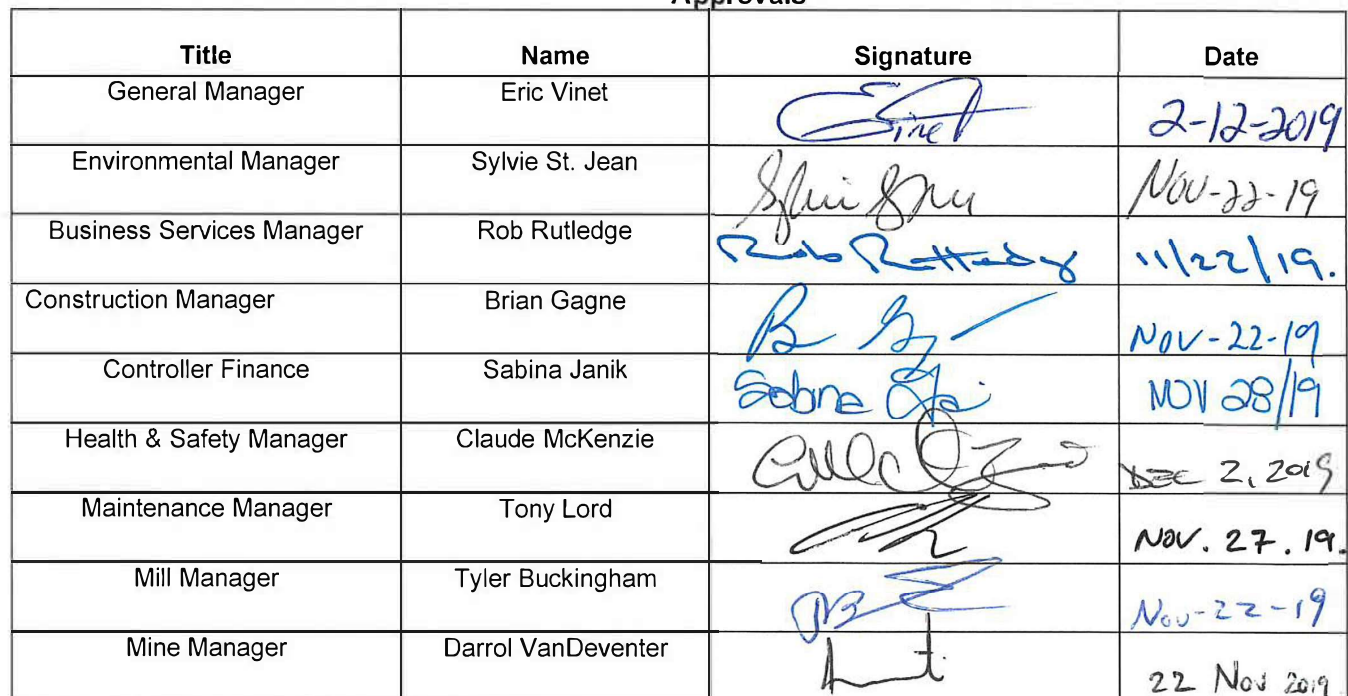 Approvals
Title Name Signature Date
General Manager Eric Vinet EVinet 2-12-2019
Environmental Manager Sylvie St. Jean Nov-22-19
Business Services Manager Rob Rutledge Rob Rutledge 11/22/19.
Construction Manager Brian Gagne Nov-22-19
Controller Finance Sabina Janik Nov 28/19
Health & Safety Manager Claude McKenzie DEC 2, 2019
Maintenance Manager Tony Lord Nov. 27. 19.
Mill Manager Tyler Buckingham Nov-22-19
Mine Manager Darrol VanDeventer 22 Nov 2019